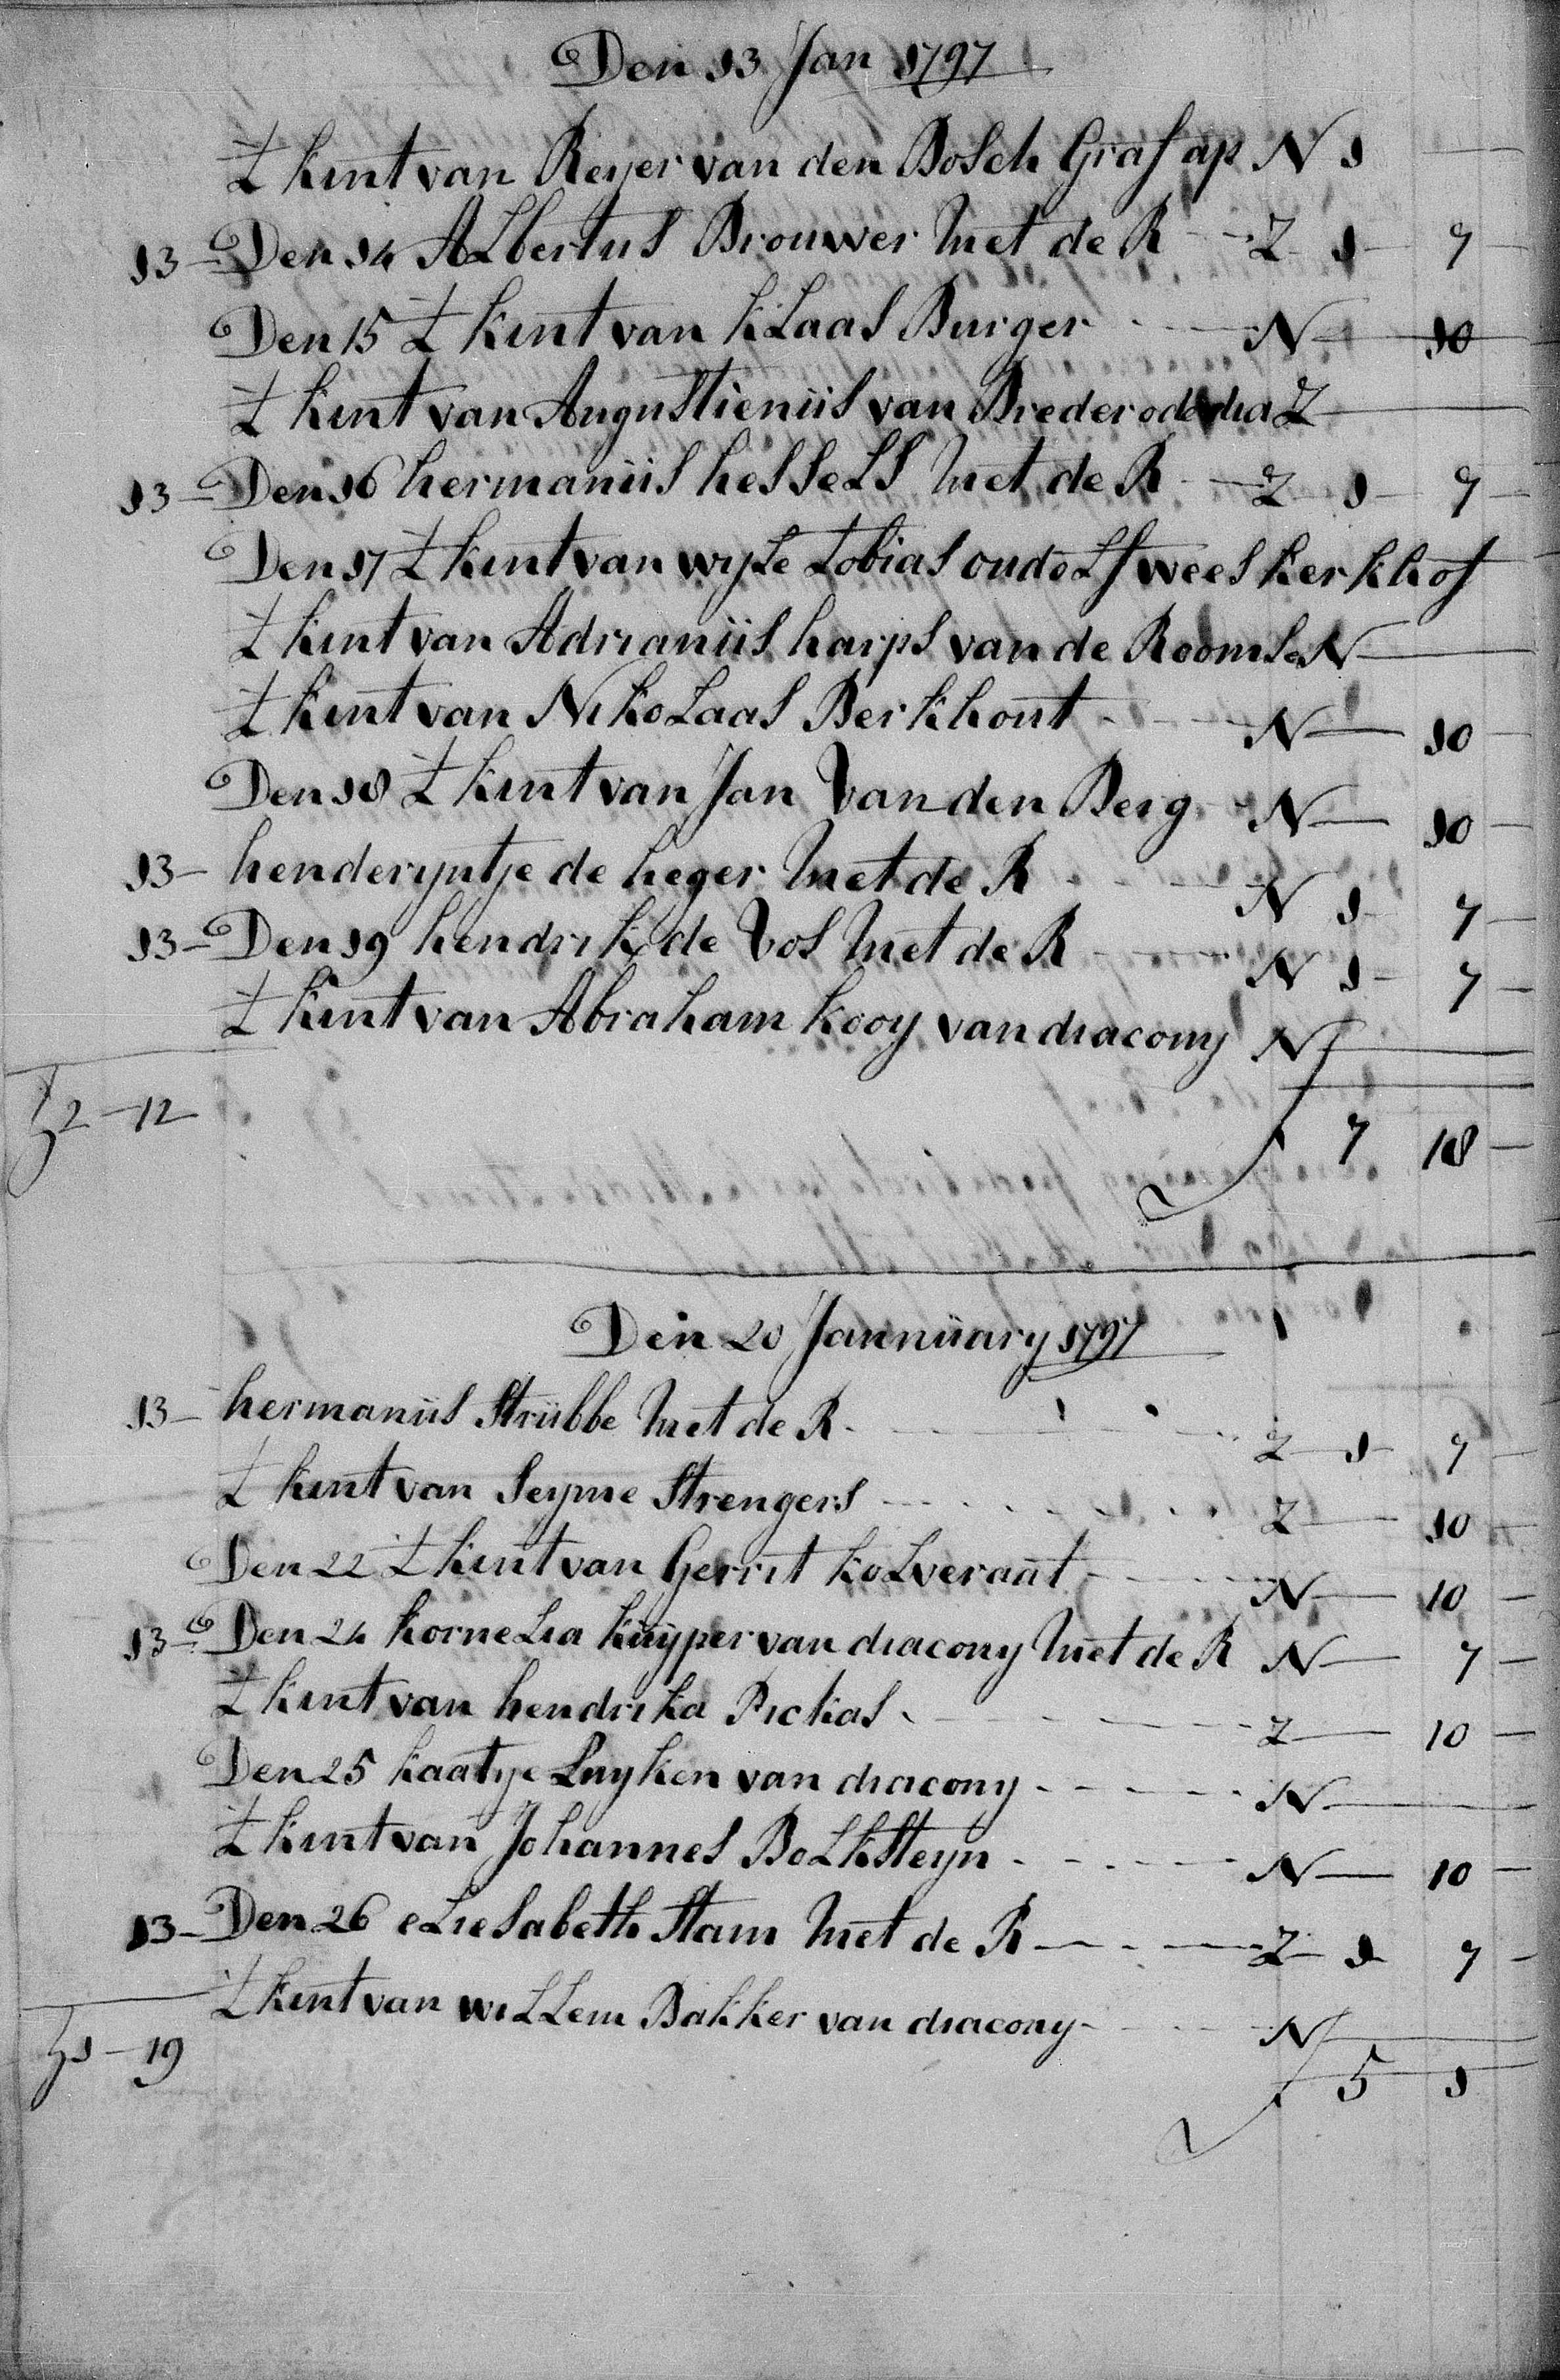 Den 13 Jan 1797
t kint van Reyer van den Bosch Graf ap N 1 —
13 — Den 14 ALbertus Brouwer Met de R - - Z 1 — 7 —
Den 15 t kint van kLaas Burger - — N — 10
t kint van Augustienus van Brederode dia Z —
13 — Den 16 hermanus hesseLs Met de R - — Z 1 — 7 —
Den 17 t kint van wyLe tobias oudeLf wees kerkhof
t kint van Adrianus harps van de Roomse N —
t kint van NikoLaas Berkhout - - — N — 10 —
Den 18 t kint van Jan Van den Berg - N — 10 —
13 — henderyntje de heger Met de R - - — N 1 — 7 —
13 — Den 19 hendrik de Vos Met de R - — N 1 — 7 —
t kint van Abraham kooy van diacony N —
ƒ2 — 12
ƒ 7 18 —
Den 20 Jannuary 1797
13 — hermanus Strubbe Met de R - - - Z — 1 — 7 —
t kint van Seyme Strengers - - - - Z — 10 —
Den 22 t kint van Gerrit koLveraat - - - N — 10 —
13 — Den 24 korneLia kuyper van diacony Met de R N — 7 —
t kint van hendrika Pickas - - - - Z — 10 —
Den 25 kaatye Luyken van diacony - - - - N —
t kint van Johannes BoLksteyn - - - - N — 10 —
13 — Den 26 eLiesabeth Stam Met de R — - - — Z — 1 — 7 —
t kint van wiLLem Bakker van diacony - - - N —
ƒ1 — 19
ƒ 5 1